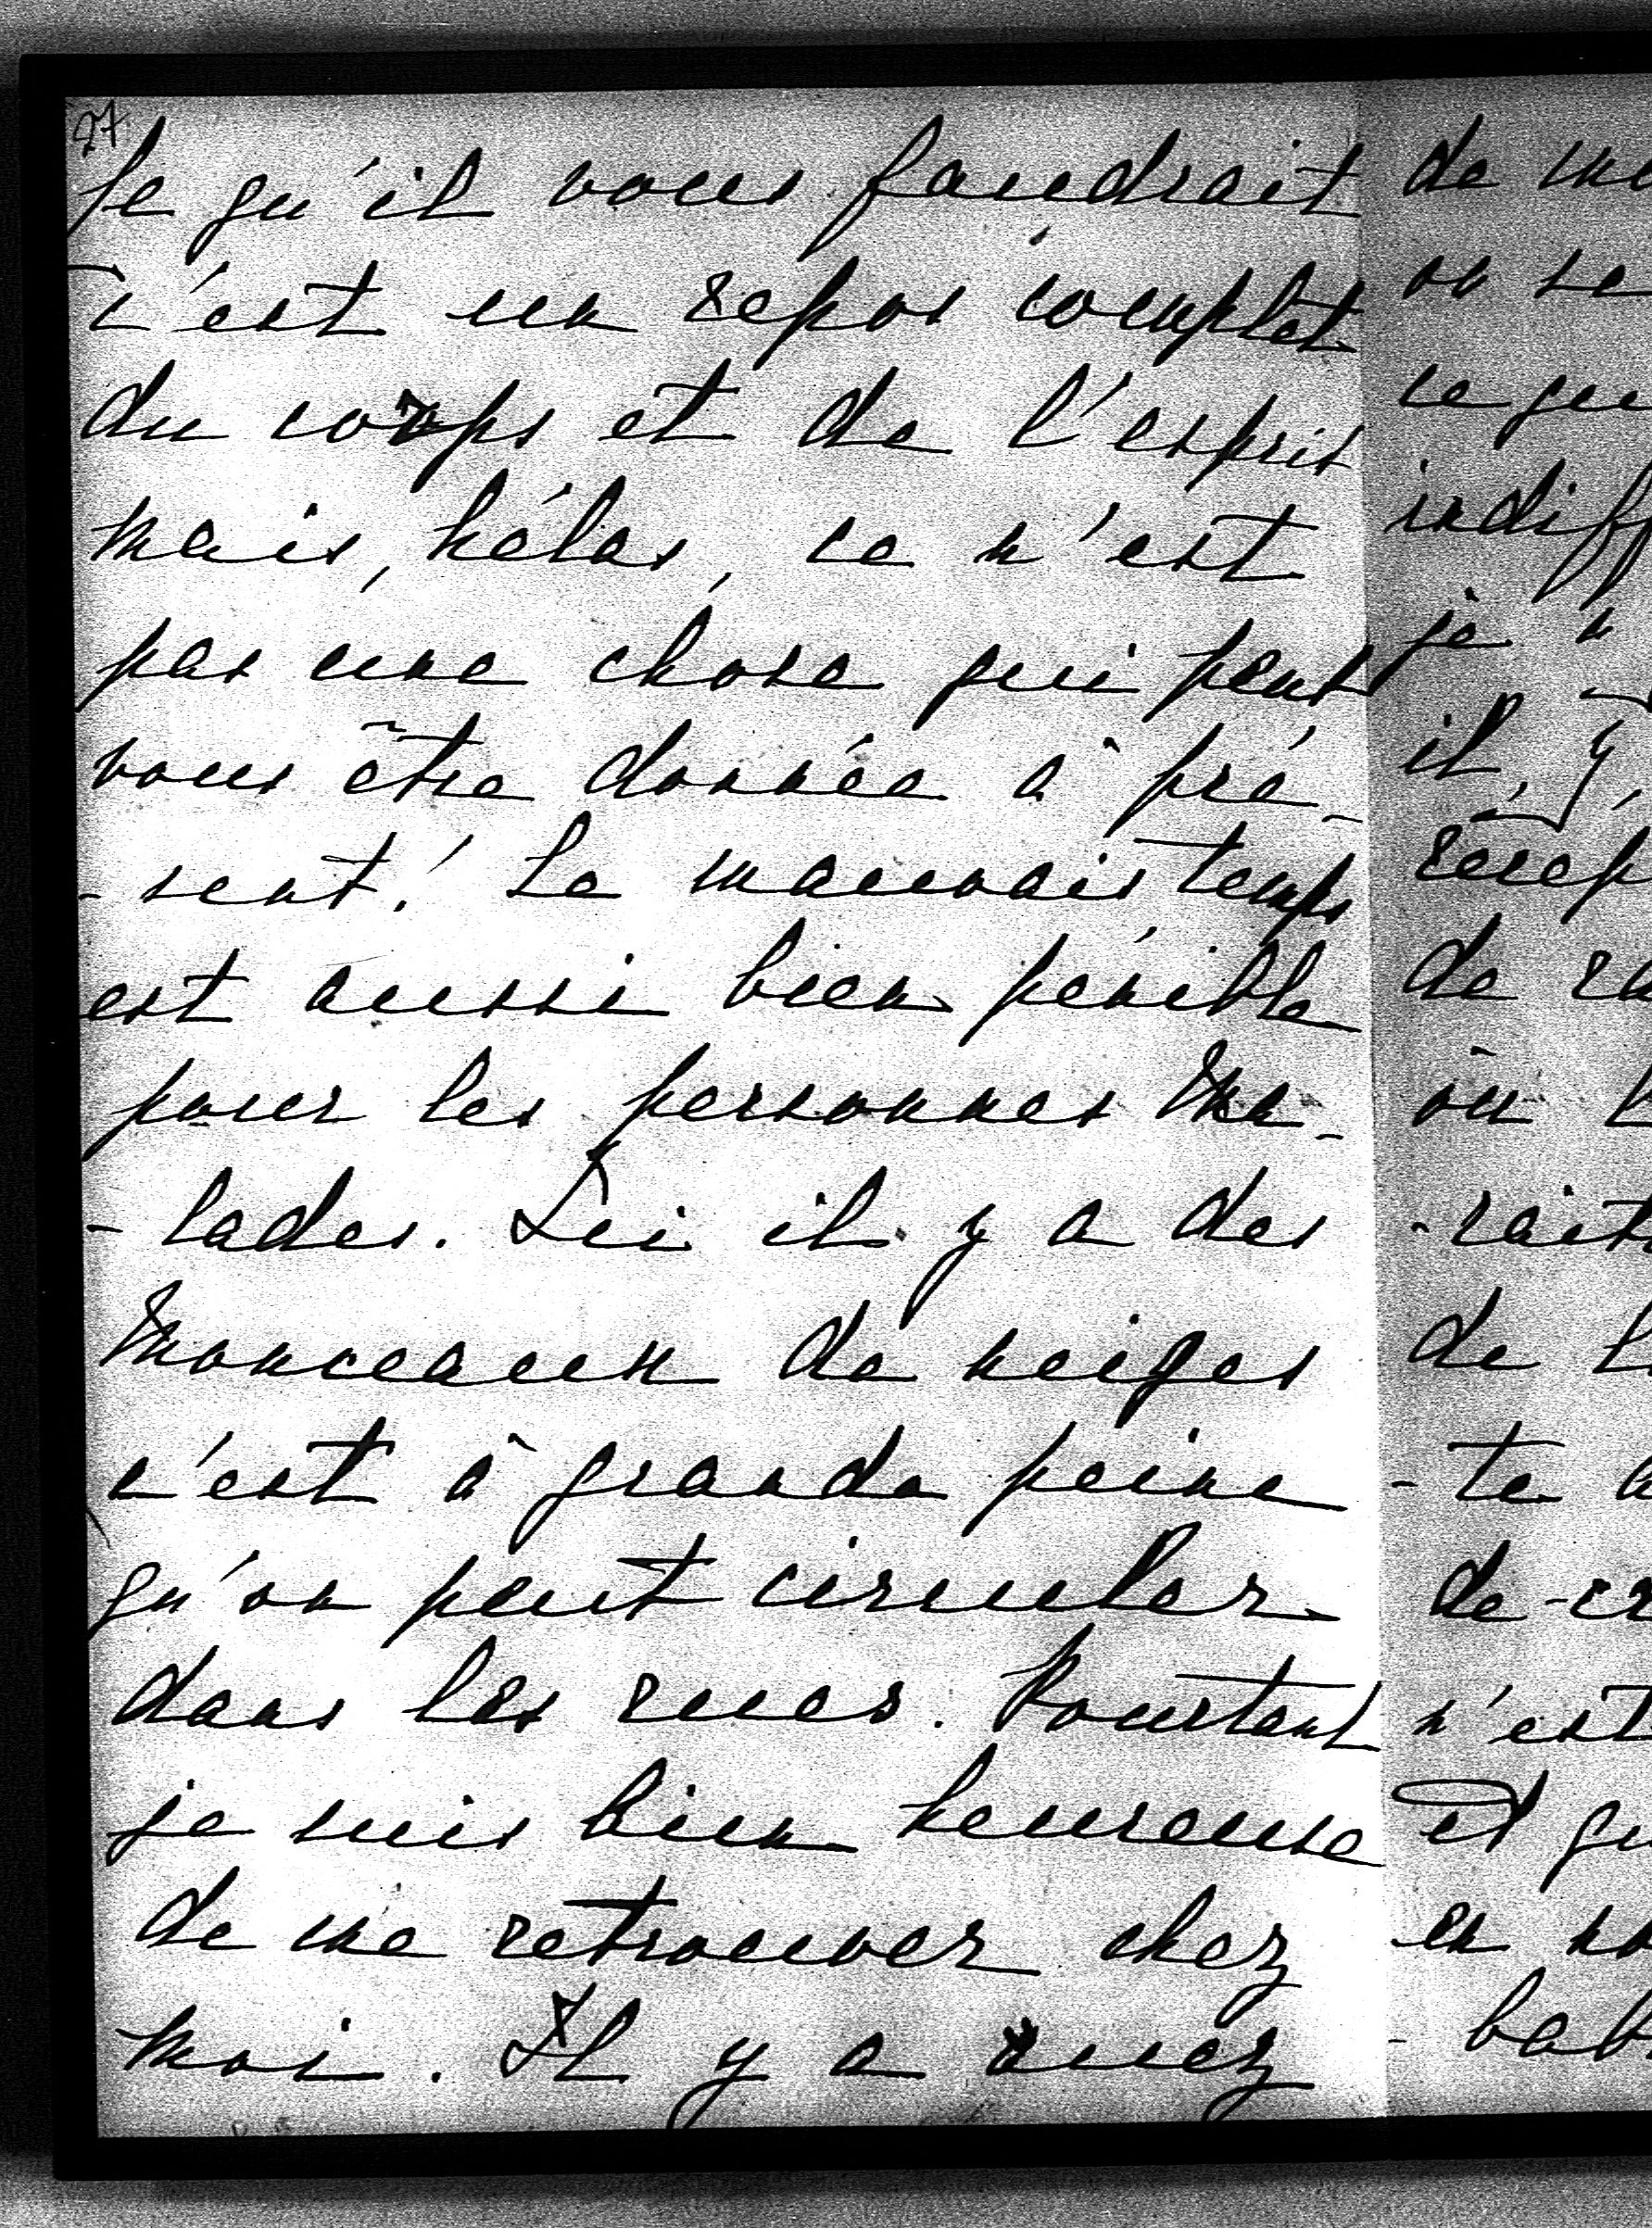 27
Ce qu'il vous faudrait
c'est un repos complet
du corps et de l'esprit
mais, hélas, ce n'est
pas une chose qui peut
vous être donnée à pré-
-sent! Le mauvais temps
est aussi bien pénible
pour les personnes ma-
-lades. Ici il y a des
monceaux de neiges
c'est à grande peine
qu'on peut circuler
dans les rues. Pourtant
je suis bien heureuse
de me retrouver chez
moi. Il y a assez
de
on se
ce qu
indiff
je n
il y
récep
de
où
-rait
de
-te
de
n'est
et qu
en